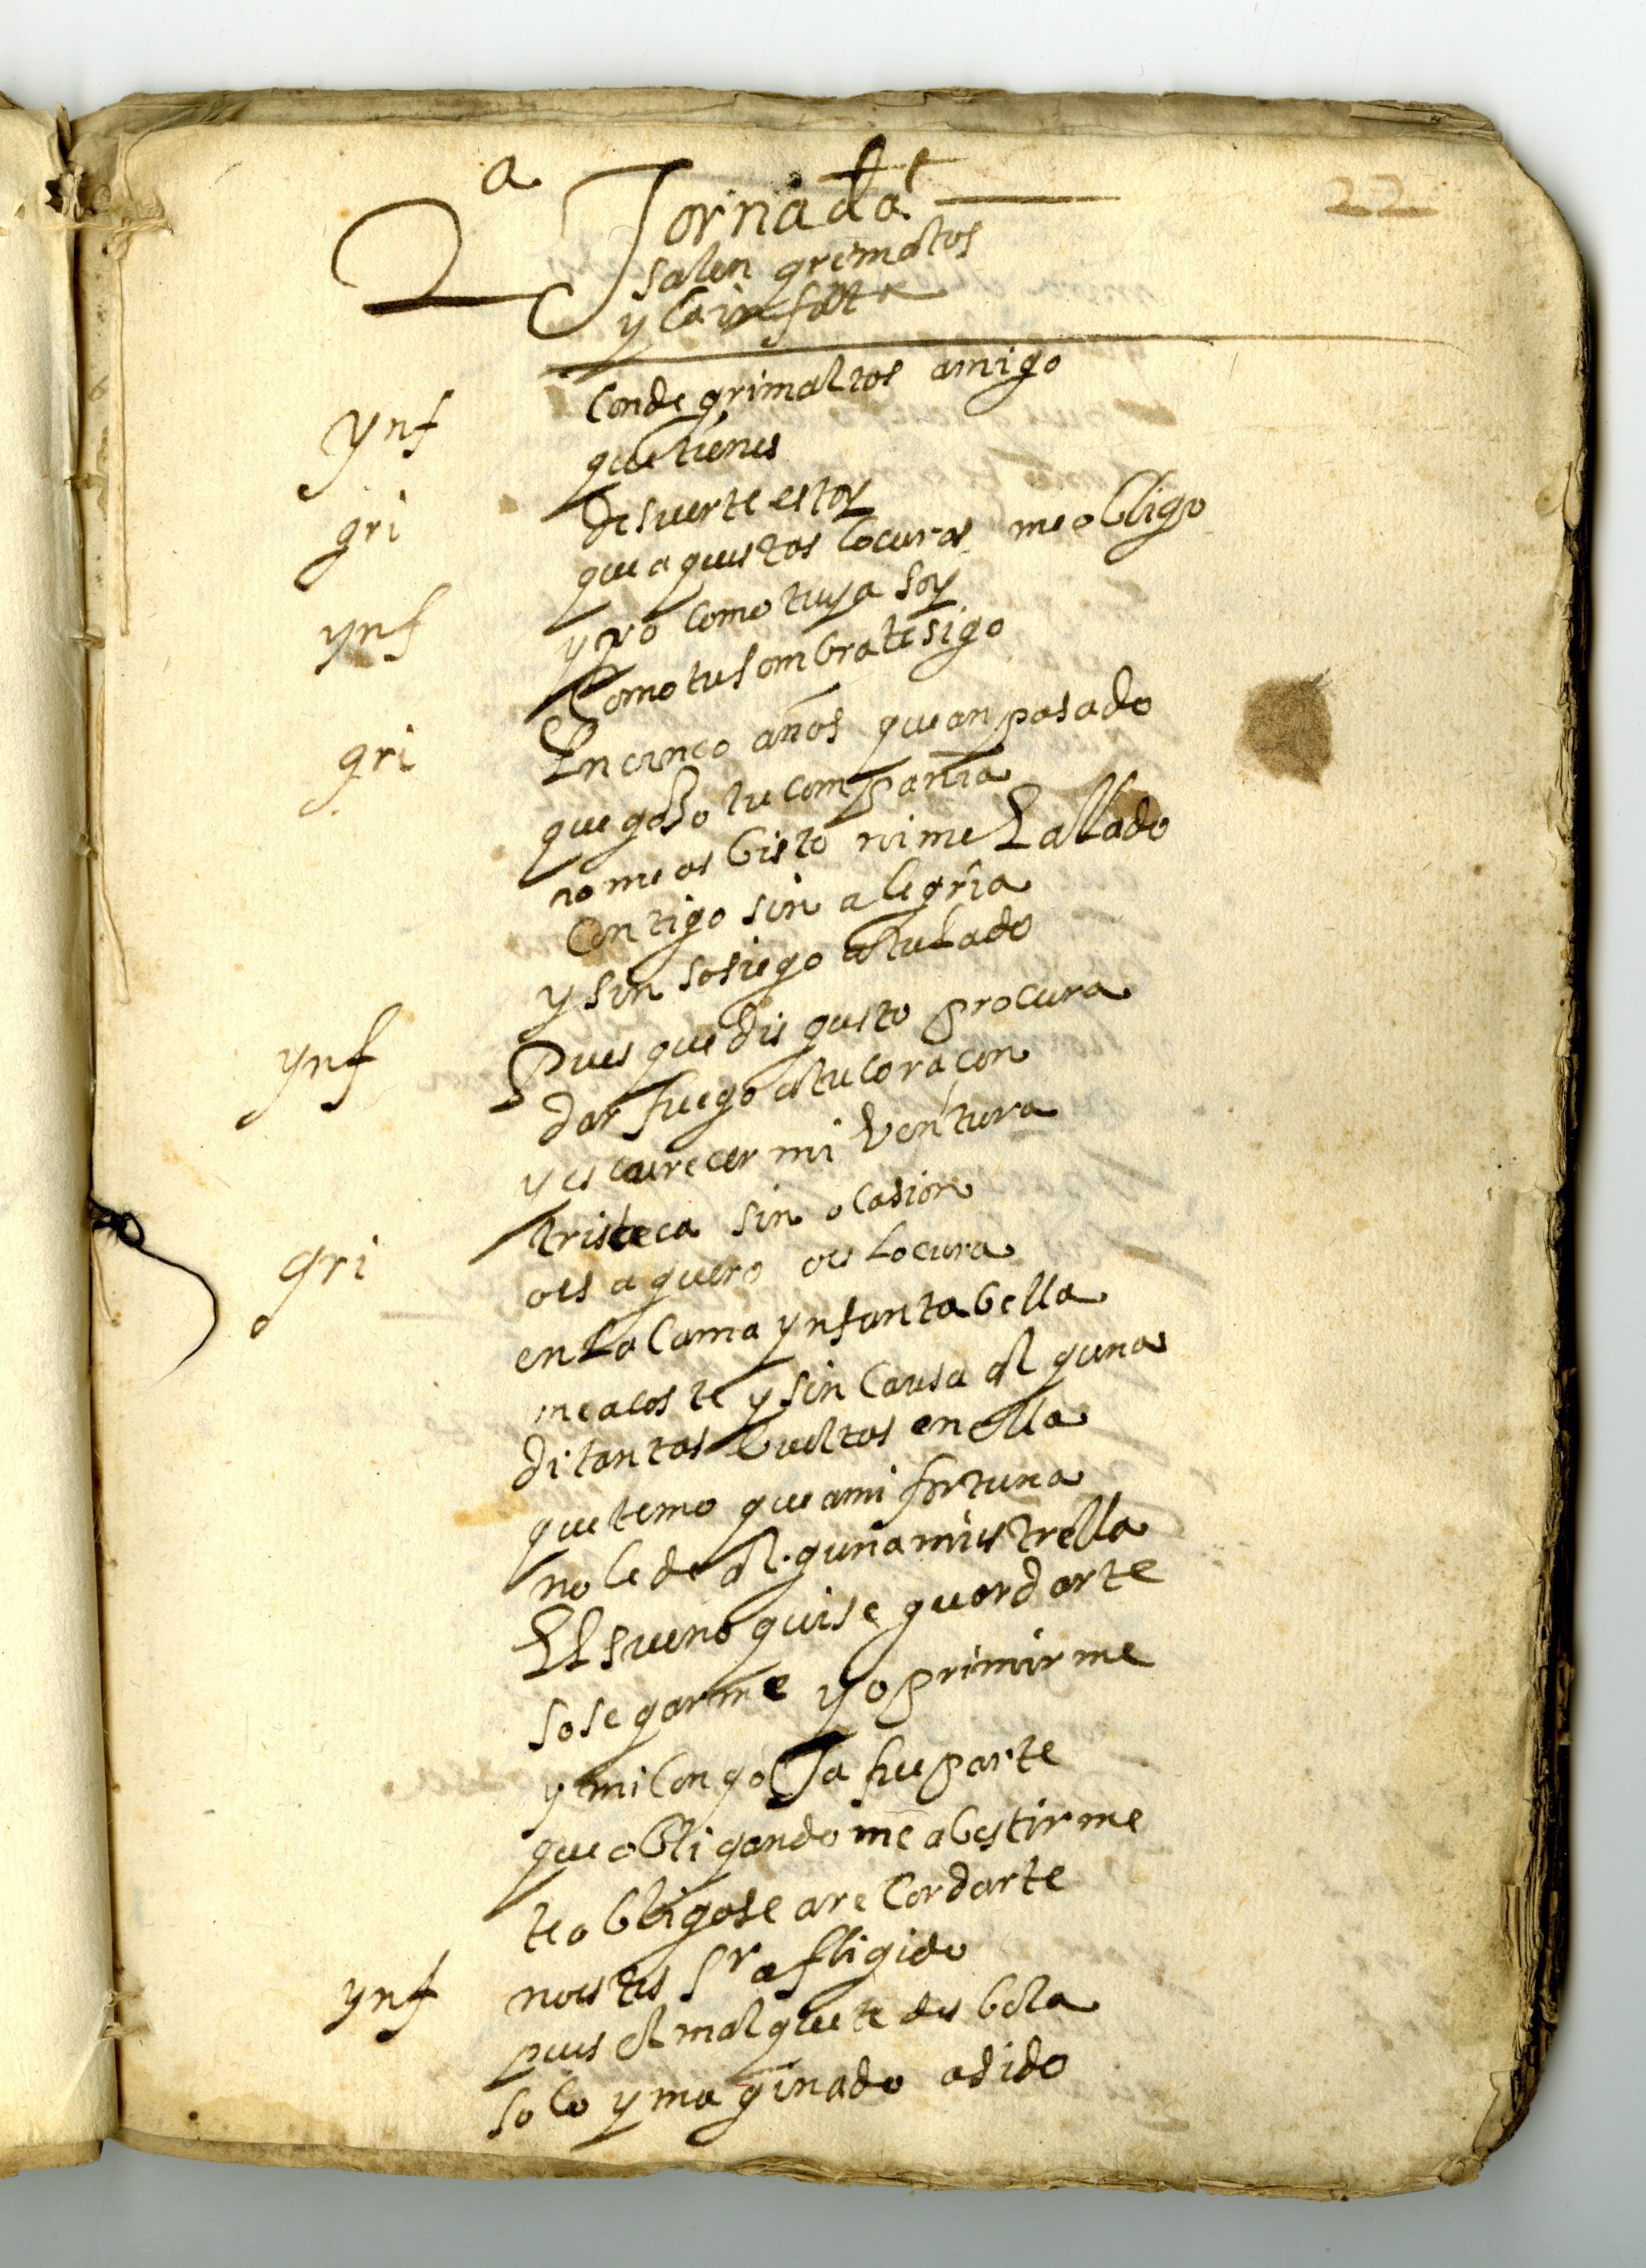 22
2a Jornada
salen grimaltos
y la infata
ynf Conde grimaltos amigo
que tienes
gri de suerte estoy
que a questas locuras me obligo
ynf y yo como tuya soy
Como tu sombra te sigo
gri En cinco años que an pasado
que goço tu compañia
no me as bisto ni me E allado
Contigo sin alegria
y sin sosiego a tu lado
ynf Pues que disgusto procura
dar fuego a tu coraçon
y escurecer mi bentura
gri tristeça sin ocasion
o es aguero o es locura
en la cama ynfanta bella
me acoste y sin causa alguna
di tantas bueltas en ella
que temo que a mi fortuna
no le de alguna mi estrella
El sueño quise guardarte
sosegarme y oprimirme
y mi congoJa fue parte
que obligandome a bestirme
te obligase a recordarte
ynf no estes sr afligido
pues el mal que te desbela
solo ymaginado a sido